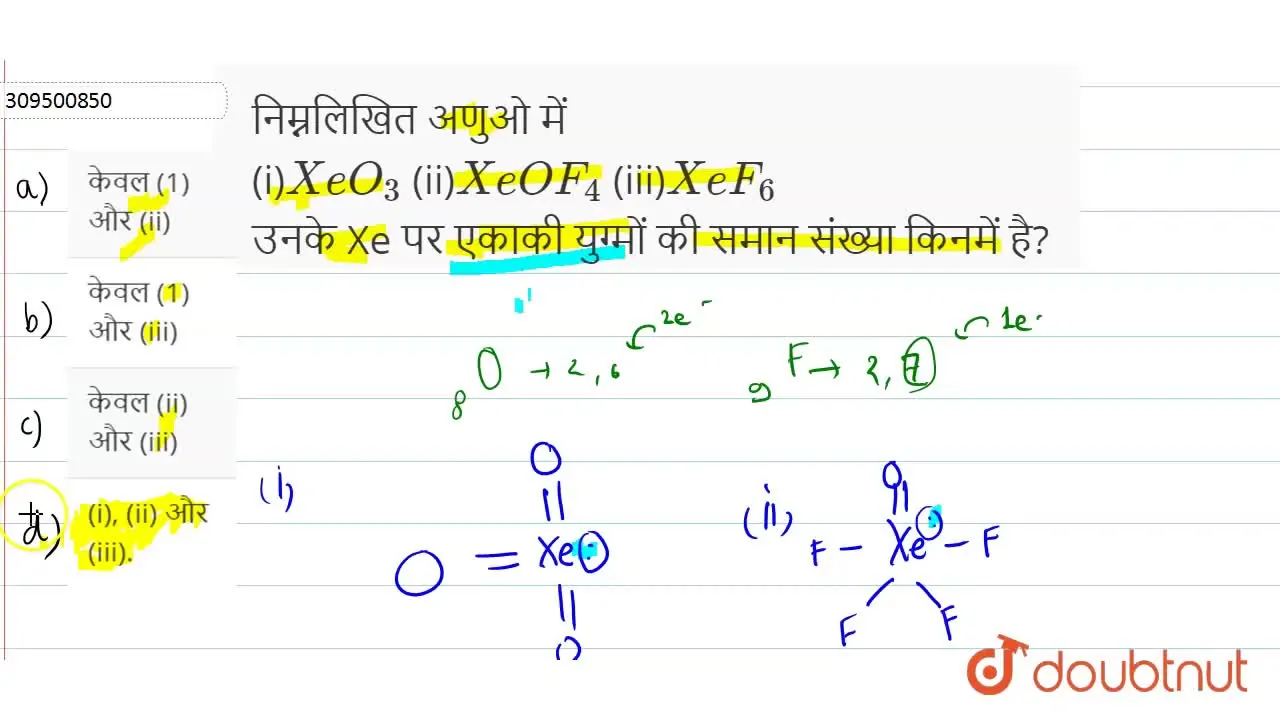 309500850
निम्नलिखित अणुओ में
(i)XeO₃ (ii)XeOF₄ (iii)XeF₆
उनके Xe पर एकाकी युग्मों की समान संख्या किनमें है?
a) केवल (1)
और (ii)
b) केवल (1)
और (iii)
c) केवल (ii)
और (iii)
d) (i), (ii) और
(iii).
2e⁻
₈O → 2, 6
1e⁻
₉F → 2, 7
(i)
O
O = Xe :
O
(ii)
O
F - Xe : - F
F F
doubtnut